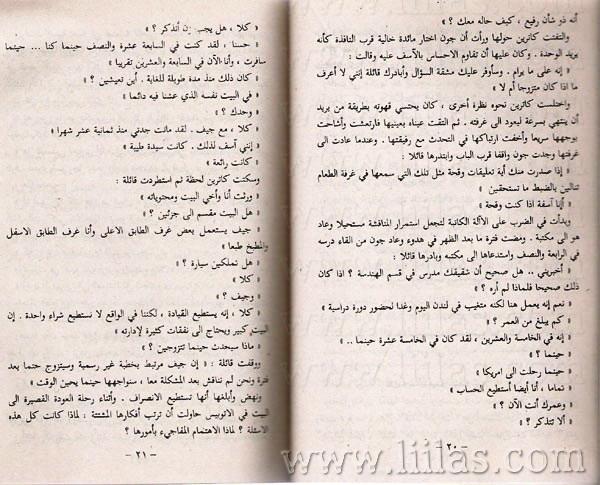 أنه ذو شأن رفيع ، كيف حاله معك ؟ »
والتفتت كاترين حولها ورأت أن جون اختار مائدة خالية قرب النافذة كأنه
يريد الوحدة . وكان عليها أن تقاوم الاحساس بالآسف عليه وقالت :
« إنه على ما يرام . وسأوفر عليك مشقة السؤال وأبادرك قائلة إنني لا أعرف
ما اذا كان متزوجا أم لا »
واختلست كاترين نحوه نظرة أخرى ، كان يحتسي قهوته بطريقة من يريد
أن ينتهي بسرعة ليعود الى غرفته . ثم التقت عيناه بعينيها فارتعشت وأشاحت
بوجهها سريعا وأخفت ارتباكها في التحدث مع رفيقتها . وعندما عادت الى
غرفتها وجدت جون واقفا قرب الباب وابتدرها قائلا :
« إذا صدرت منك أية تعليقات وقحة مثل تلك التي سمعها في غرفة الطعام
تنالين بالضبط ما تستحقين »
« أنا آسفة اذا كنت وقحة »
وبدأت في الضرب على الآلة الكاتبة لتجعل استمرار المناقشة مستحيلا وعاد
هو الى مكتبة . ومضت فترة ما بعد الظهر في هدوء وعاد جون من القاء درسه
في الرابعة والنصف واستدعاها الى مكتبه وبادرها قائلا :
« أخبريني .. هل صحيح أن شقيقك مدرس في قسم الهندسة ؟ اذا كان
ذلك صحيحا فلماذا لم أره ؟ »
« نعم إنه يعمل هنا لكنه متغيب في لندن اليوم وغدا لحضور دورة دراسية »
« كم يبلغ من العمر ؟ »
« إنه في الخامسة والعشرين ، لقد كان في الخامسة عشرة حينما .. »
« حينما ؟ »
« حينما رحلت الى امريكا »
« تماما ، أنا أيضا أستطيع الحساب »
« وعمرك أنت الآن ؟ »
« ألا تتذكر ؟ »
– ٢٠ –
« كلا ، هل يجب أن أتذكر ؟ »
« حسنا ، لقد كنت في السابعة عشرة والنصف حينما كنا ... حينما
سافرت ، وأنا الآن في السابعة والعشرين تقريبا »
« كان ذلك منذ مدة طويلة للغاية . أين تعيشين ؟ »
« في البيت نفسه الذي عشنا فيه دائما »
« وحدك ؟ »
« كلا ، مع جيف . لقد ماتت جدتي منذ ثمانية عشر شهرا »
« إنني آسف لذلك . كانت سيدة طيبة »
« كانت رائعة »
وسكتت كاترين لحظة ثم استطردت قائلة :
« ورثت أنا وأخي البيت ومحتوياته »
« هل البيت مقسم الى جزئين ؟ »
« جيف يستعمل بعض غرف الطابق الاعلى وأنا غرف الطابق الاسفل
والمطبخ طبعا »
« هل تملكين سيارة ؟ »
« كلا »
« وجيف ؟ »
« كلا ، إنه يستطيع القيادة ، لكننا في الواقع لا نستطيع شراء واحدة . إن
البيت كبير ويحتاج الى نفقات كثيرة لإدارته »
« ماذا سيحدث حينما تتزوجين ؟ »
ووقفت قائلة : « إن جيف مرتبط بخطبة غير رسمية وسيتزوج حتما بعد
فترة ونحن لم نناقش بعد المشكلة معا ، سنواجهها حينما يحين الوقت »
ونهض وأبلغها أنها تستطيع الانصراف . وأثناء رحلة العودة القصيرة الى
البيت في الاتوبيس حاولت أن ترتب أفكارها المشتتة : لماذا كانت كل هذه
الاسئلة ؟ لماذا الاهتمام المفاجيء بأمورها ؟
– ٢١ –
www.liilas.com